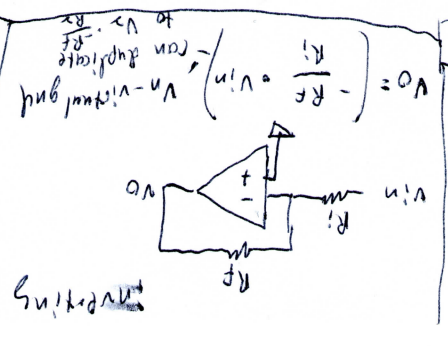 inverting
Rf
Vin
Ri
-
+
VO
VO = ( - Rf / Ri • Vin ) , Vn - virtual gnd
- can duplicate
to Vx • -Rf / Rx